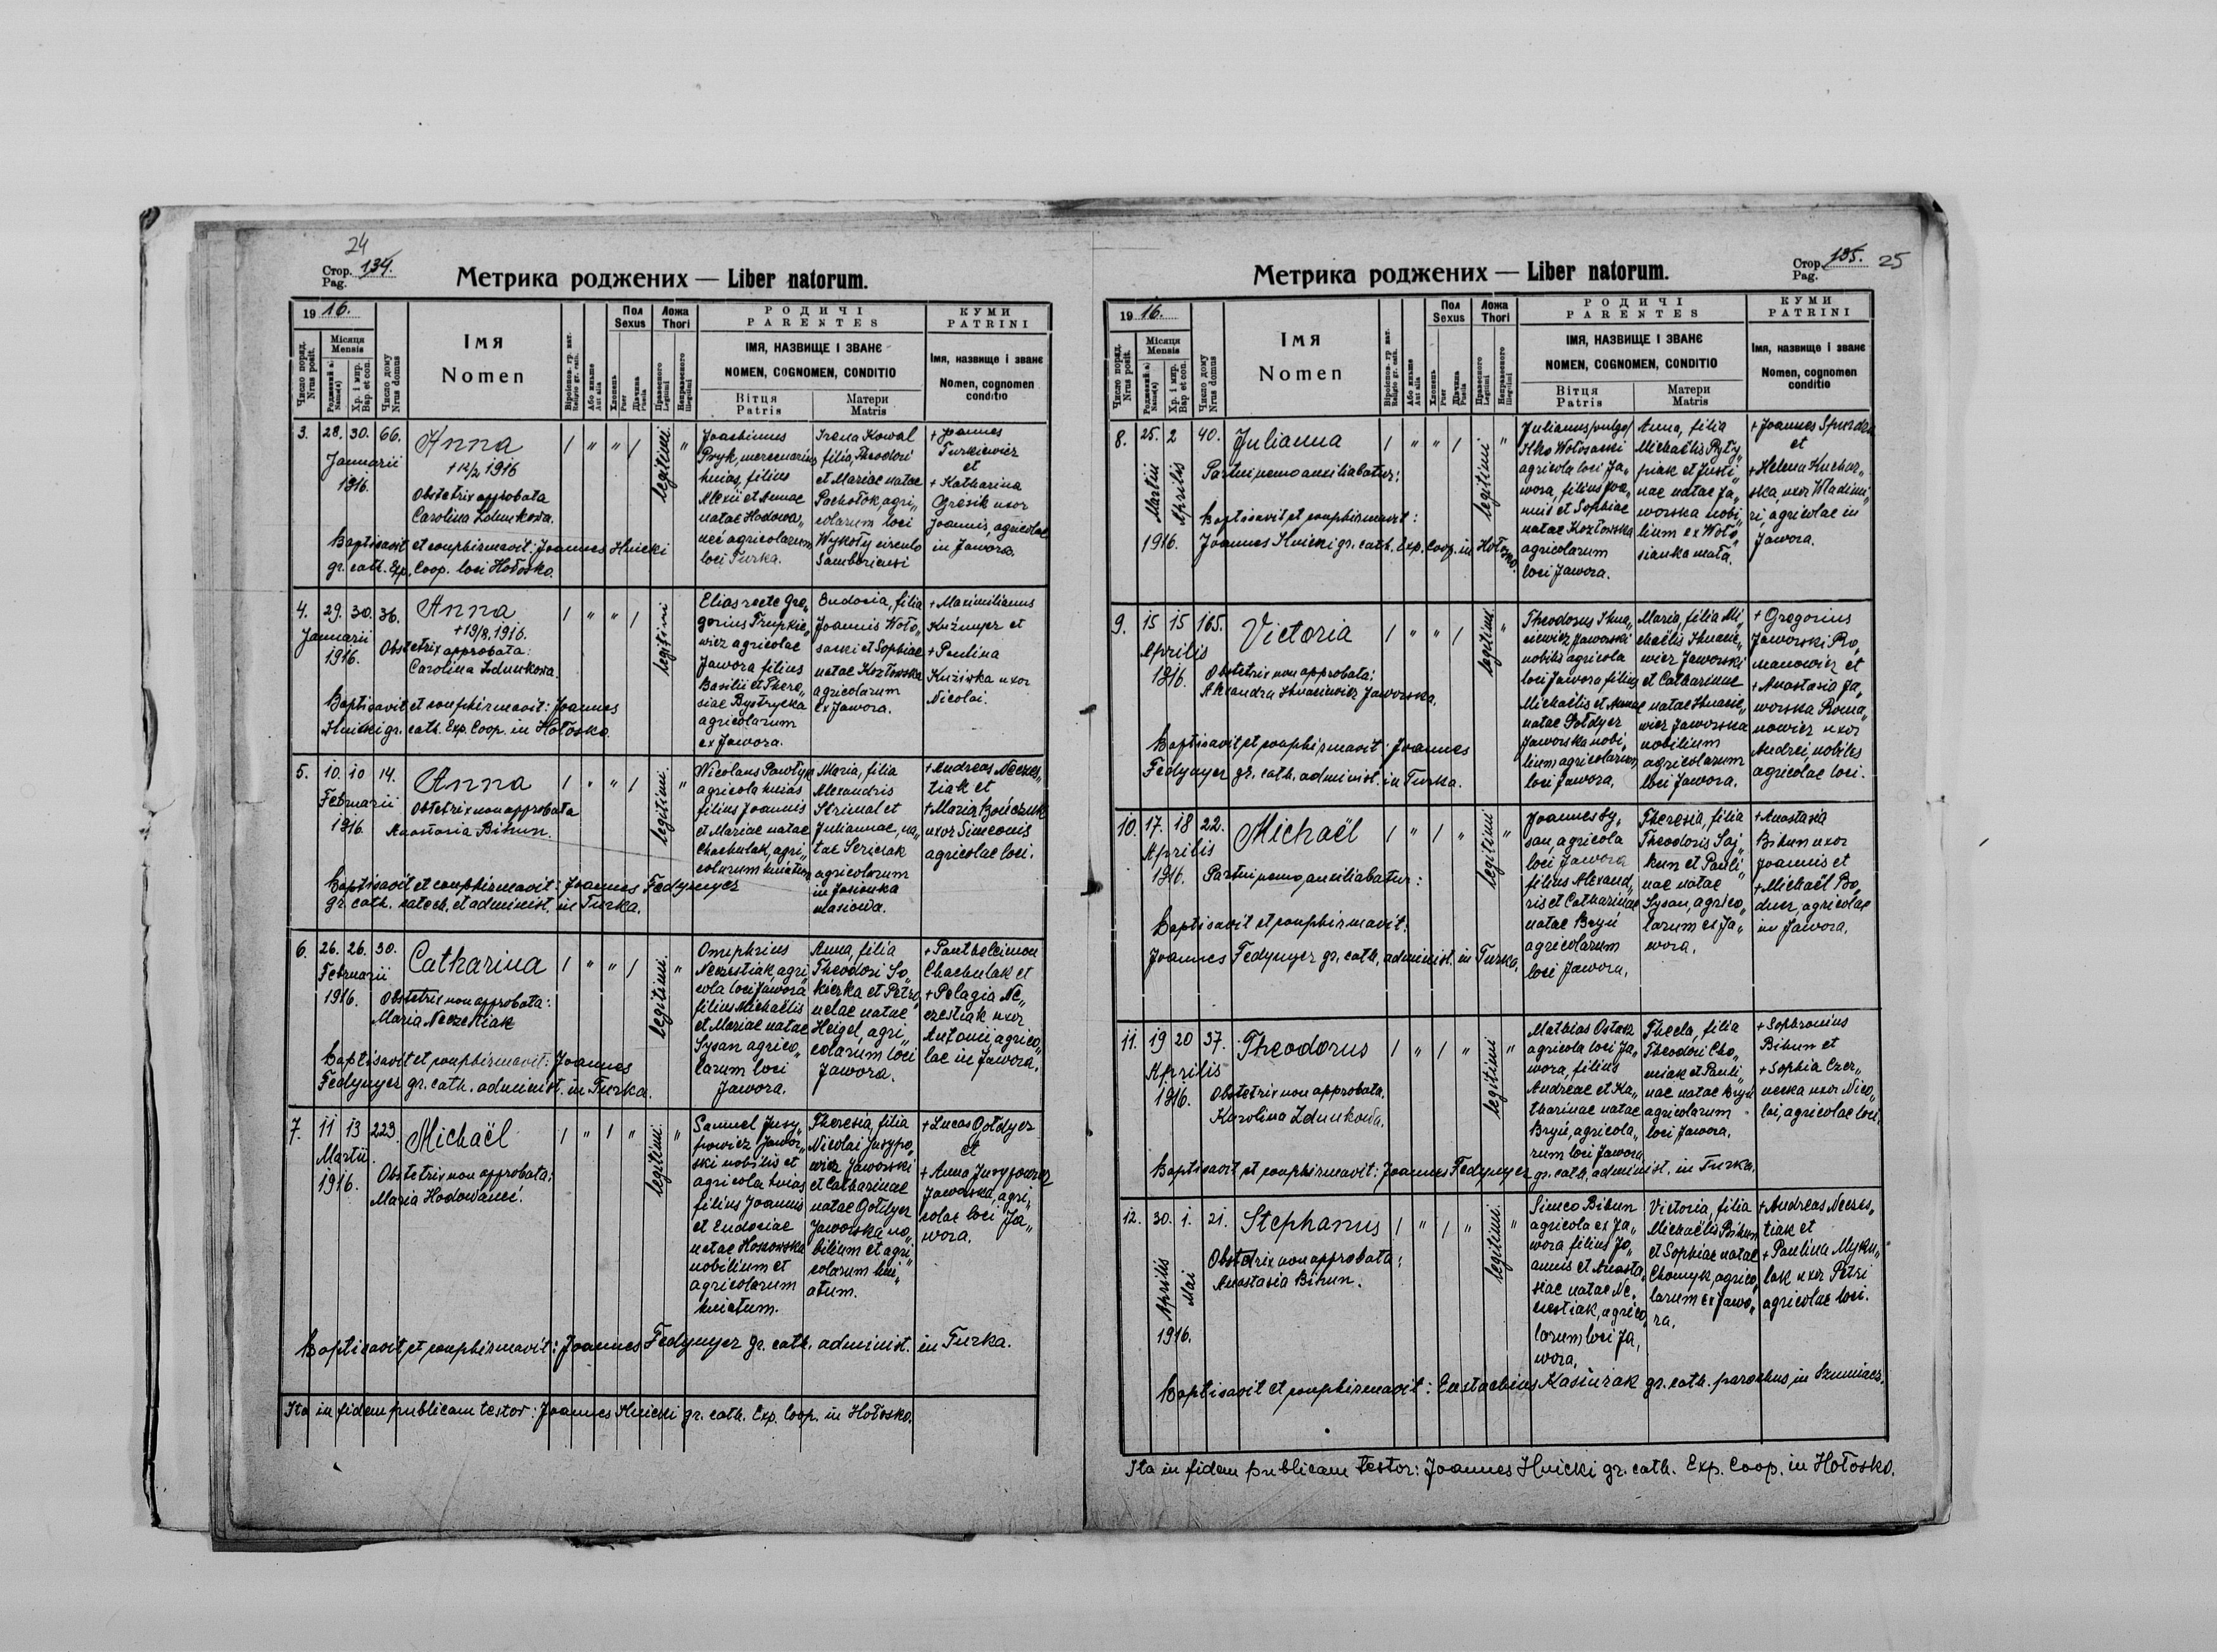 24
Стор. 134.
Pag.
Метрика роджених — Liber natorum.
19 16.
Число поряд.
Nrus posit.
Місяця
Mensis
Хр. і мир.
Bap. et con.
Число дому
Nrus domus
Імя
Nomen
Або инше
Aut alia
Пол
Sexus
Хлопець
Puer
Дівчина
Puella
Ложа
Thori
Правесного
Legitimi
Неправесного
Illegitimi
РОДИЧІ
PARENTES
ІМЯ, НАЗВИЩЕ І ЗВАНЄ
NOMEN, COGNOMEN, CONDITIO
Вітця
Patris
Матери
Matris
КУМИ
PATRINI
Імя, назвище і званє
Nomen, cognomen
conditio
3. 28. 30. 66.
Januarii
1916.
Anna
+ 12/2 1916
Obstetrix approbata
Carolina Zdunkowa.
Baptisavit et conphirmavit: Joannes Hnicki
gr. cath. Exp. Coop. loci Hołosko.
legitimi.
Joachimus
Pryk, mercenarius
huias, filius
Alexii et Annae
natae Hodowa„
nec agricolarum
loci Turka.
Irena Kowal
filia, Theodori
et Mariae natae
Pachołok, agri„
colarum loci
Wykoty circulo
Samboriensi
+ Joannes
Turkiewicz
et
+ Katharina
Gresik uxor
Joannis, agricolae
in Jawora
4. 29. 30. 36.
Januarii
1916.
Anna
+ 19/8. 1916.
Obstetrix approbata:
Carolina Zdunkowa.
Baptisavit et conphirmavit: Joannes
Hnicki gr. cath. Exp. Coop. in Hołosko.
legitimi
Elias recte Gre„
gorius Trupkie„
wicz agricolae
Jawora filius
Basilii et There„
siae Bystrycka
agricolarum
ex Jawora.
Eudocia, filia
Joannis Woło„
sacki et Sophiae
natae Kozłowska
agricolarum
ex Jawora.
+ Maximilianus
Kuźmyer et
+ Paulina
uxor
Nicolai.
5. 10. 10 14.
Februarii
1916.
Anna
Obstetrix non approbata
Anastasia Bihun.
Baptisavit et conphirmavit: Joannes Fedynyer
gr. cath. catech. et administ. in Turka.
legitimi.
Nicolaus Pawłyk
agricola huias
filius Joannis
et Mariae natae
Chachulak, agri„
colarum huiatum
Maria, filia
Alexandris
Strimal et
Juliannae, na„
tae
agricolarum
in Jasionka
masiowa.
+ Andreas Neczes„
tiak et
+ Maria Bończuk
uxor Simeonis
agricolae loci.
6. 26. 26. 30.
Februarii
1916.
Catharina
Obstetrix non approbata:
Maria Neczestiak
Baptisavit et conphirmavit: Joannes
Fedynyer gr. cath. administ. in Turka.
legitimi.
Onuphrius
Neczestiak, agri„
cola loci Jawora
filius Michaëlis
et Mariae natae
Sysan agrico„
larum loci
Jawora.
Anna, filia
Theodori So„
kierka et Petro„
nelae natae
Heigel, agri„
colarum loci
Jawora.
+ Pantheleimon
Chachulak et
+ Pelagia Ne„
czestiak uxor
Antonii, agrico„
lae in Jawora.
7. 11 13 223.
Martii
1916.
Michaël
Obstetrix non approbata:
Maria Hodowanec.
legitimi.
Samuel Jusy„
powicz Jawor„
ski nobilis et
agricola huias
filius Joannis
et Eudociae
natae Hoszowska
nobilium et
agricolarum
huiatum.
Theresia, filia
Nicolai Jusypo„
wicz Jaworski
et Catharinae
natae Gołdyer
Jaworska no„
bilium et agri„
colarum hui„
atum.
+ Lucas Gołdyer
et
+ Anna Jusypowicz
Jaworska, agri„
colae loci Ja„
wora.
Baptisavit et conphirmavit: Joannes Fedynyer gr. cath. administ. in Turka.
Ita in fidem publicam testor: Joannes Hnicki gr. cath. Exp. Coop. in Hołosko.
Стор. 135. 25
Pag.
Метрика роджених — Liber natorum.
19 16.
Число поряд.
Nrus posit.
Місяця
Mensis
Хр. і мир.
Bap et con.
Число дому
Nrus domus
Імя
Nomen
Або инше
Aut alia
Пол
Sexus
Хлопець
Puer
Дівчина
Puella
Ложа
Thori
Правесного
Legitimi
Неправесного
Illegitimi
РОДИЧІ
PARENTES
ІМЯ, НАЗВИЩЕ І ЗВАНЄ
NOMEN, COGNOMEN, CONDITIO
Вітця
Patris
Матери
Matris
КУМИ
PATRINI
Імя, назвище і званє
Nomen, cognomen
conditio
8. 25. 2 40.
Martii
Aprilis
1916.
Julianna
Partui nemo auxiliabatur:
Baptisavit et conphirmavit:
Joannes Hnicki gr. cath. Exp. Coop. in Hołosko.
legitimi
Julianus /vulgo/
Ilko Wołosacki
agricola loci Ja„
wora, filius Joa„
nnis et Sophiae
natae Kozłowska
agricolarum
loci Jawora.
Anna, filia
Michaëlis Pyty„
piak et Justi„
nae natae Ja„
worska nobi„
lium ex Woło„
sianka mała.
+ Joannes
et
+ Helena Kuchar„
ska, uxor Wladimi„
ri, agricolae in
Jawora.
9. 15 15 165.
Aprilis
1916.
Victoria
Obstetrix non approbata:
Alexandra Ihnaciewicz Jaworska.
Baptisavit et conphirmavit: Joannes
Fedynyer gr. cath. administ. in Turka.
legitimi
Theodosus Ihna„
ciewicz Jaworski
nobilis agricola
loci Jawora filius
Michaëlis et Annae
natae Gołdyer
Jaworska nobi„
lium agricolarum
loci Jawora.
Maria, filia Mi„
chaëlis Ihnacie„
wicz Jaworski
et Catharinae
natae Ihnacie„
wicz Jaworska
nobilium
agricolarum
loci Jawora.
+ Gregorius
Jaworski Ro„
manowicz et
+ Anastasia Ja„
worska Roma„
nowicz uxor
Andrei, nobiles
agricolae loci.
10. 17. 18 22.
Aprilis
1916.
Michaël
Partui nemo auxiliabatur:
Baptisavit et conphirmavit:
Joannes Fedynyer gr. cath. administ. in Turka.
legitimi
Joannes Sy„
san, agricola
loci Jawora
filius Alexand„
ris et Catharinae
natae Bryń
agricolarum
loci Jawora.
Theresia, filia
Theodoris Saj„
kun et Pauli„
nae natae
Sysan, agrico„
larum ex Ja„
wora.
+ Anastasia
Bihun uxor
Joannis et
+ Michaël Bo„
dner, agricolae
in Jawora.
11. 19 20 37.
Aprilis
1916.
Theodorus
Obstetrix non approbata.
Karolina Zdunkowa.
Baptisavit et conphirmavit: Joannes Fedynyer gr. cath. administ. in Turka.
legitimi
Mathias Ostasz
agricola loci Ja„
wora, filius
Andreae et Ka„
tharinae natae
Bryń, agricola„
rum loci Jawora
Thecla, filia
Theodori Cho„
miak et Pauli„
nae natae Bryń
agricolarum
loci Jawora.
+ Sophronius
Bihun et
+ Sophia Czer„
necka uxor Nico„
lai, agricolae loci.
12. 30. 1. 21.
Aprilis
Mai
1916.
Stephanus
Obstetrix non approbata:
Anastasia Bihun.
legitimi.
Simeo Bihun
agricola ex Ja„
wora filius Jo„
annis et Anasta„
siae natae Ne„
czestiak, agrico„
larum loci Ja„
wora.
Victoria, filia
Michaëlis Bihun
et Sophiae natae
Chomyk, agrico„
larum ex Jawo„
ra.
+ Andreas Neczes„
tiak et
+ Paulina Myku„
lak uxor Petri
agricolae loci.
Baptisavit et conphirmavit: Eustachius Kasiurak gr. cath. parochus in Szumiacz.
Ita in fidem publicam testor: Joannes Hnicki gr. cath. Exp. Coop. in Hołosko.